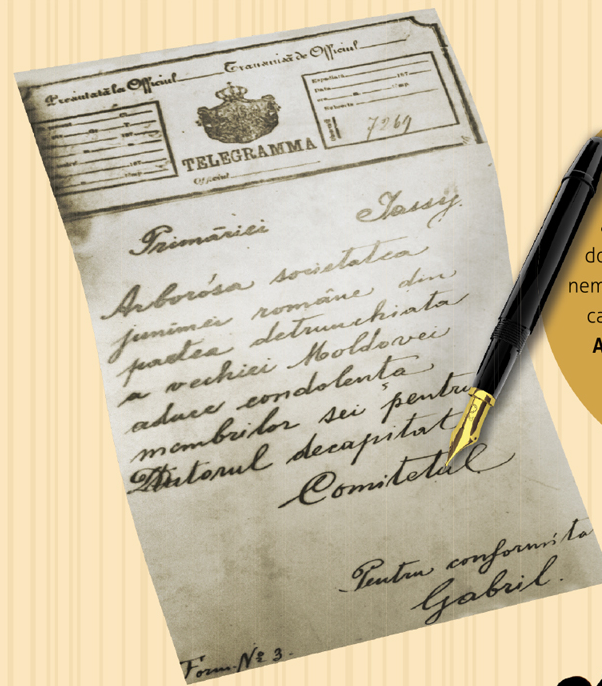 Presantată la Officiul
Transmisă de Officiul
7269
TELEGRAMMA
Officiul
Primăriei Jassy.
Arborósa societatea
junimei române din
partea detrunchiata
a vechiei Moldovei
aduce condolenta
membrilor sei pentru
Domnul decapitat
Comitetul
Pentru conformita
Gabril.
Form. № 3.
do
nem
ca
A